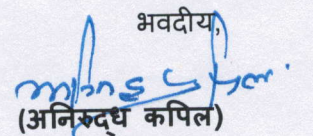 भवदीय,
(अनिरुद्ध कपिल)